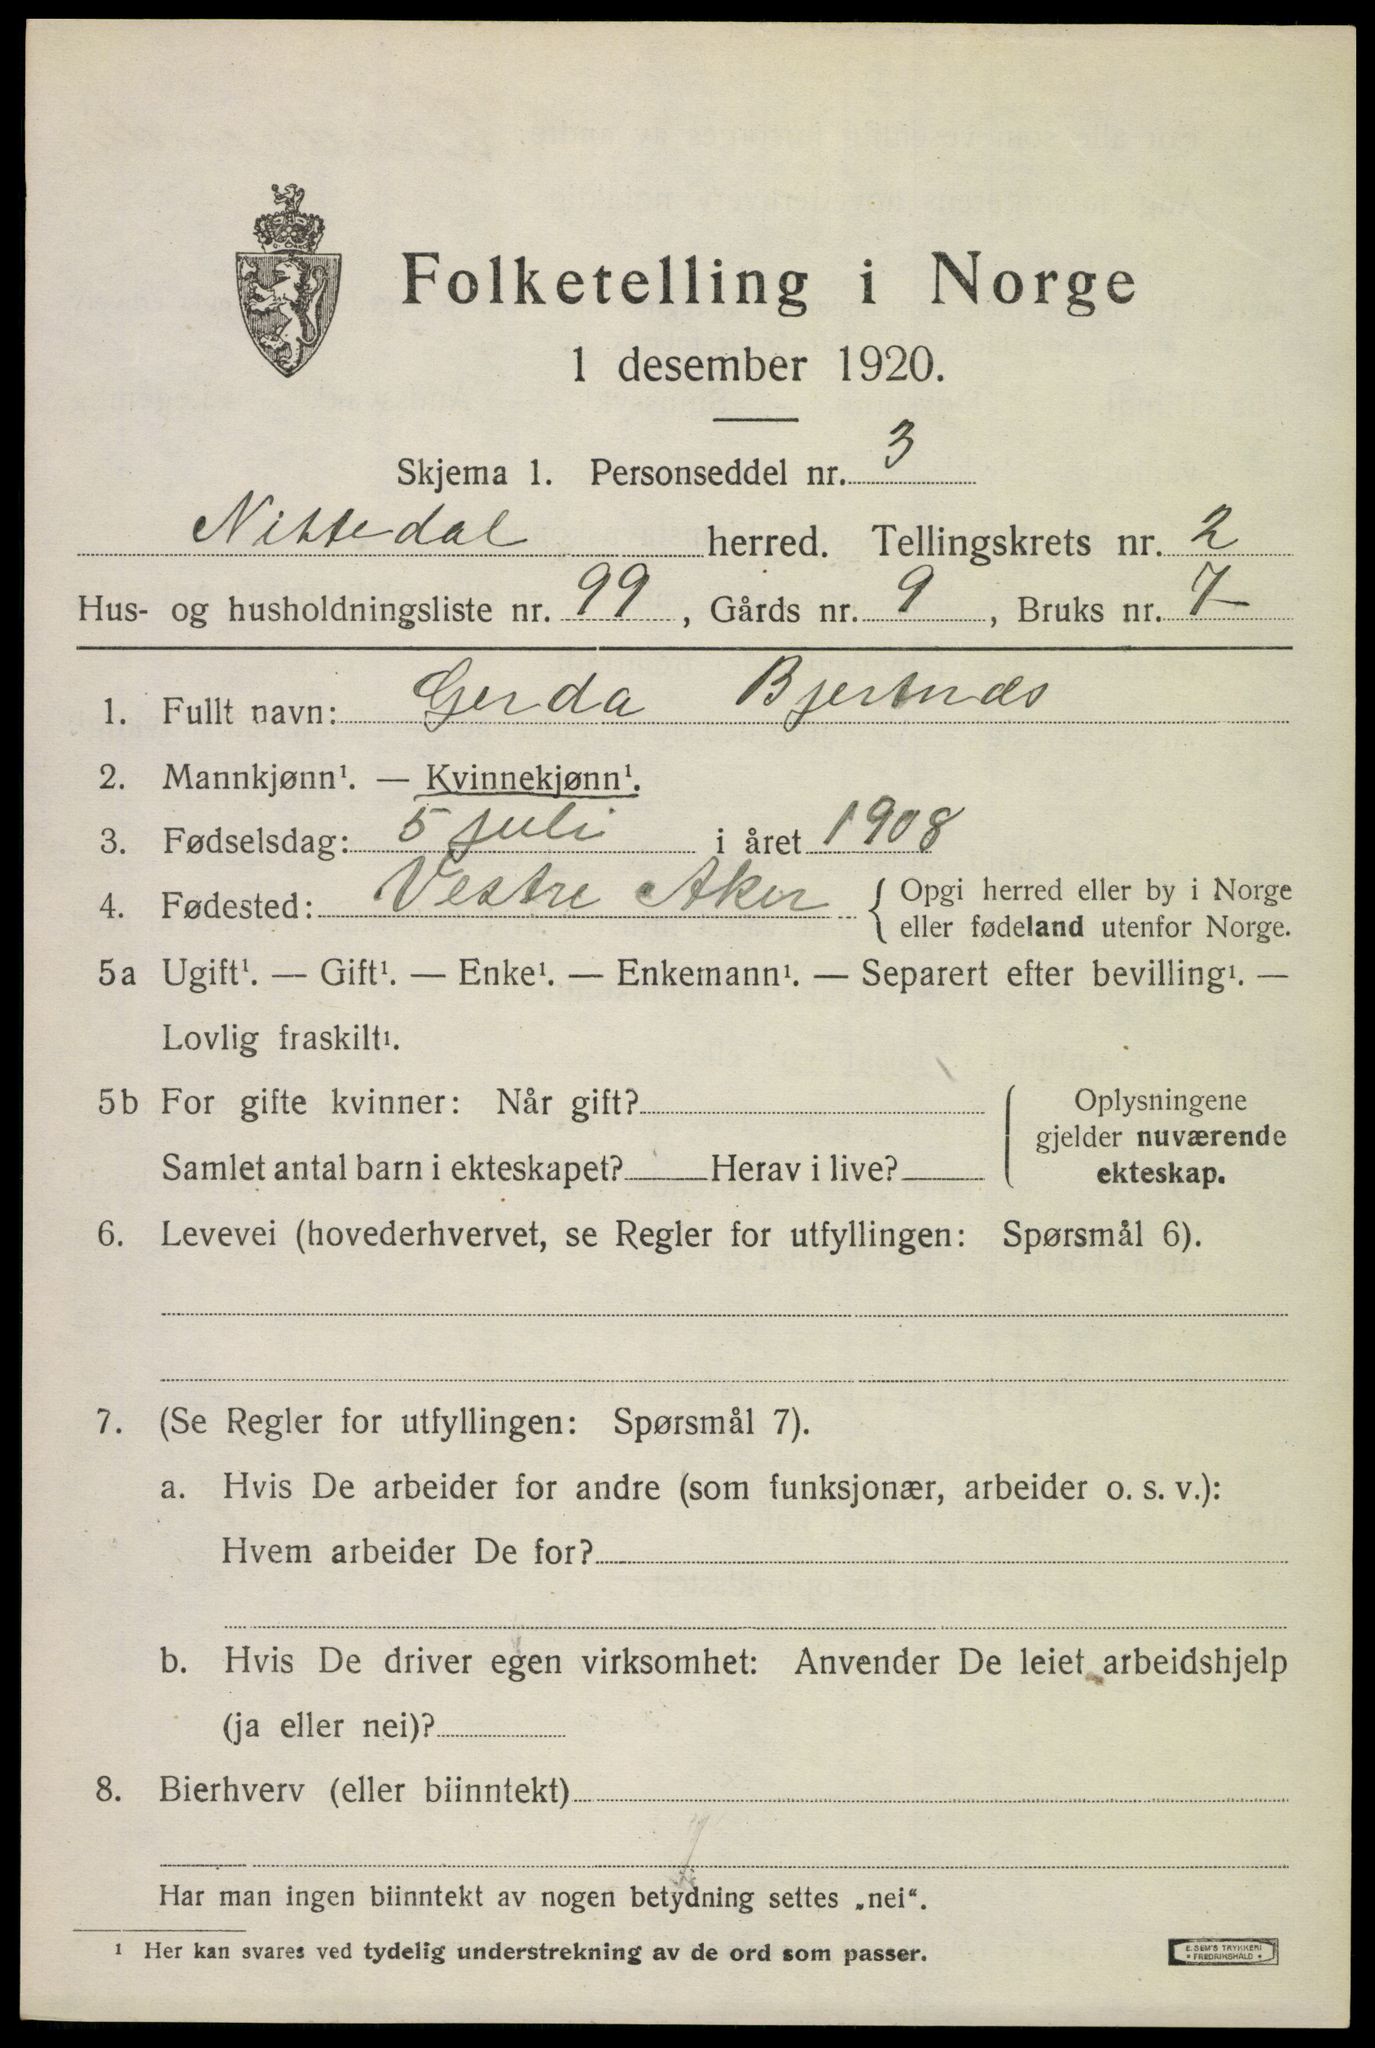 Folketelling i Norge
1 desember 1920.
Skjema 1. Personseddel nr. 3
Nittedal herred. Tellingskrets nr. 2
Hus- og husholdningsliste nr. 99, Gårds nr. 9, Bruks nr. 7
1. Fullt navn: Gerda Bjertnæs
2. Mannkjønn¹. — Kvinnekjønn¹.
3. Fødselsdag: 5 juli i året 1908
4. Fødested: Vestre Aker { Opgi herred eller by i Norge
eller fødeland utenfor Norge.
5a Ugift¹. — Gift¹. — Enke¹. — Enkemann¹. — Separert efter bevilling¹. —
Lovlig fraskilt¹.
5b For gifte kvinner: Når gift?
Samlet antal barn i ekteskapet? Herav i live?
Oplysningene
gjelder nuværende
ekteskap.
6. Levevei (hovederhvervet, se Regler for utfyllingen: Spørsmål 6).
7. (Se Regler for utfyllingen: Spørsmål 7).
a. Hvis De arbeider for andre (som funksjonær, arbeider o. s. v.):
Hvem arbeider De for?
b. Hvis De driver egen virksomhet: Anvender De leiet arbeidshjelp
(ja eller nei)?
8. Bierhverv (eller biinntekt)
Har man ingen biinntekt av nogen betydning settes „nei“.
¹ Her kan svares ved tydelig understrekning av de ord som passer.
E. SEM'S TRYKKERI
• FREDRIKSHALD •